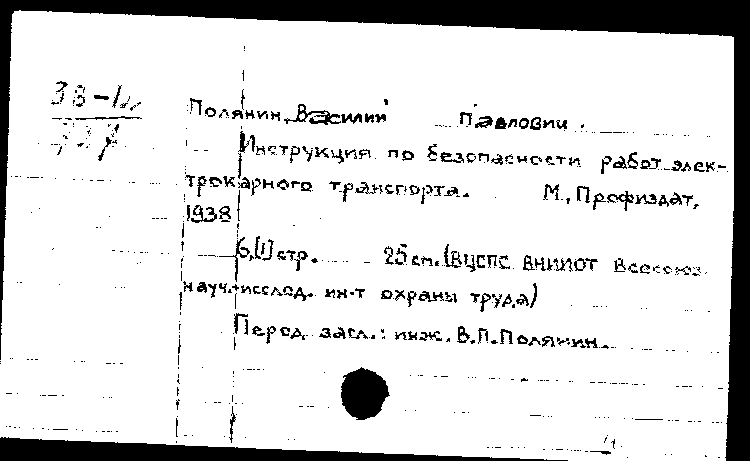 38-
Полянин, Василий Павлович.
Инструкция по безопасности работ элек-
трокарного транспорта. М., Профиздат,
1938
6,[1] стр. 25 см. (ВЦСПС ВНИИОТ Всесоюз.
науч.-исслед. ин-т охраны труда)
Перед загл.: инж. В.П.Полянин.